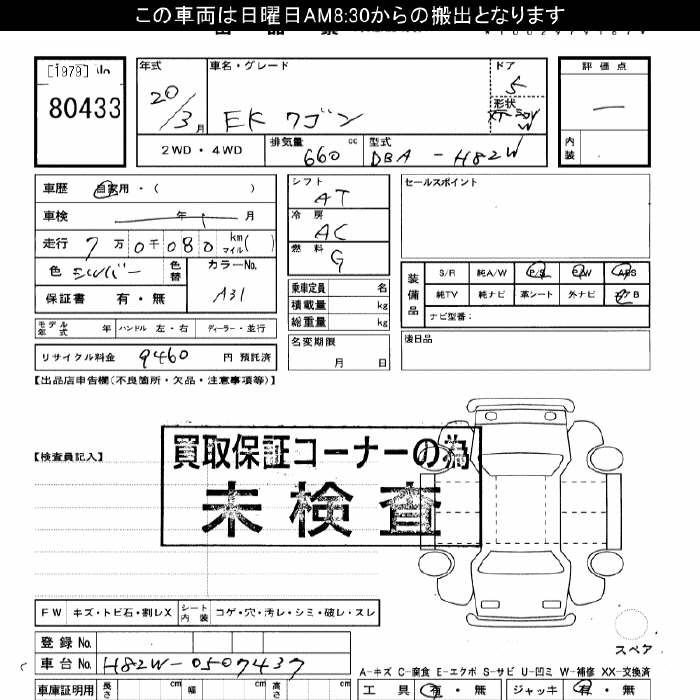 この車両は日曜日AM8:30からの搬出となります
[1979]
80433
年式
車名・グレード
ドア
評価点
20/3月
EK ワゴン
5
形状
2WD・4WD
排気量
cc
型式
内装
660
DBA-H82W
車歴
自家用・( )
シフト
AT
セールスポイント
車検
年
月
冷房
AC
走行
7万0千080
km
マイル
( )
燃料
G
色
シルバー
色替
カラーNo.
A31
乗車定員
名
装備品
S/R
純A/W
P/S
P/W
ABS
保証書
有・無
積載量
kg
純TV
純ナビ
革シート
外ナビ
エアB
総重量
kg
ナビ型番:
モデル年式
年
ハンドル
左・右
ディーラー・並行
名変期限
後日品
リサイクル料金
9460
円
預託済
月
日
【出品店申告欄(不良箇所・欠品・注意事項等)】
買取保証コーナーの為
【検査員記入】
未検査
FW
キズ・トビ石・割レX
シート内装
コゲ・穴・汚レ・シミ・破レ・スレ
登録No.
スペア
車台No.
H82W-0507437
A-キズ C-腐食 E-エクボ S-サビ U-凹ミ W-補修 XX-交換済
車庫証明用
長さ
cm
幅
cm
高さ
cm
工具
有・無
ジャッキ
有・無